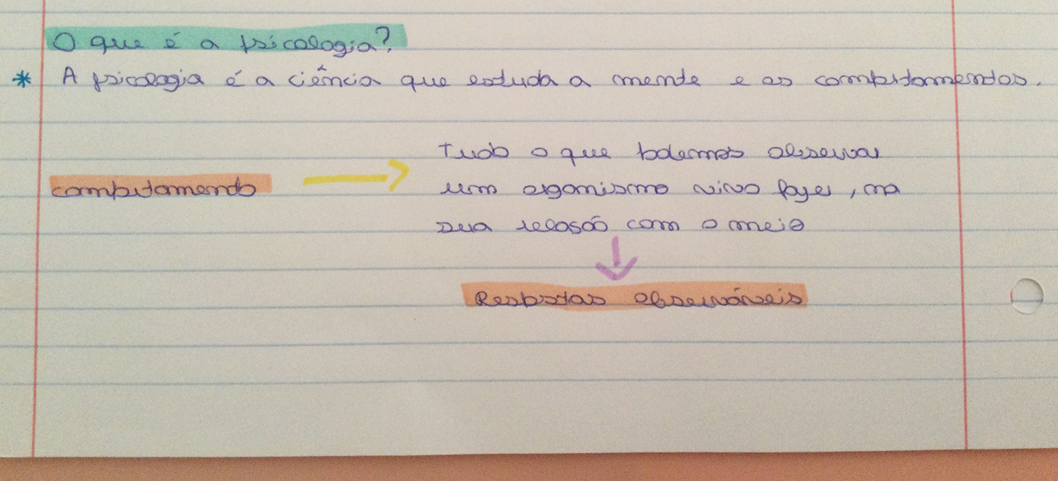 O que é a psicologia?
* A psicologia é a ciência que estuda a mente e os comportamentos.
comportamento → Tudo o que podemos observar
um organismo vivo fazer, na
sua relasão com o meio
↓
Respostas observáveis